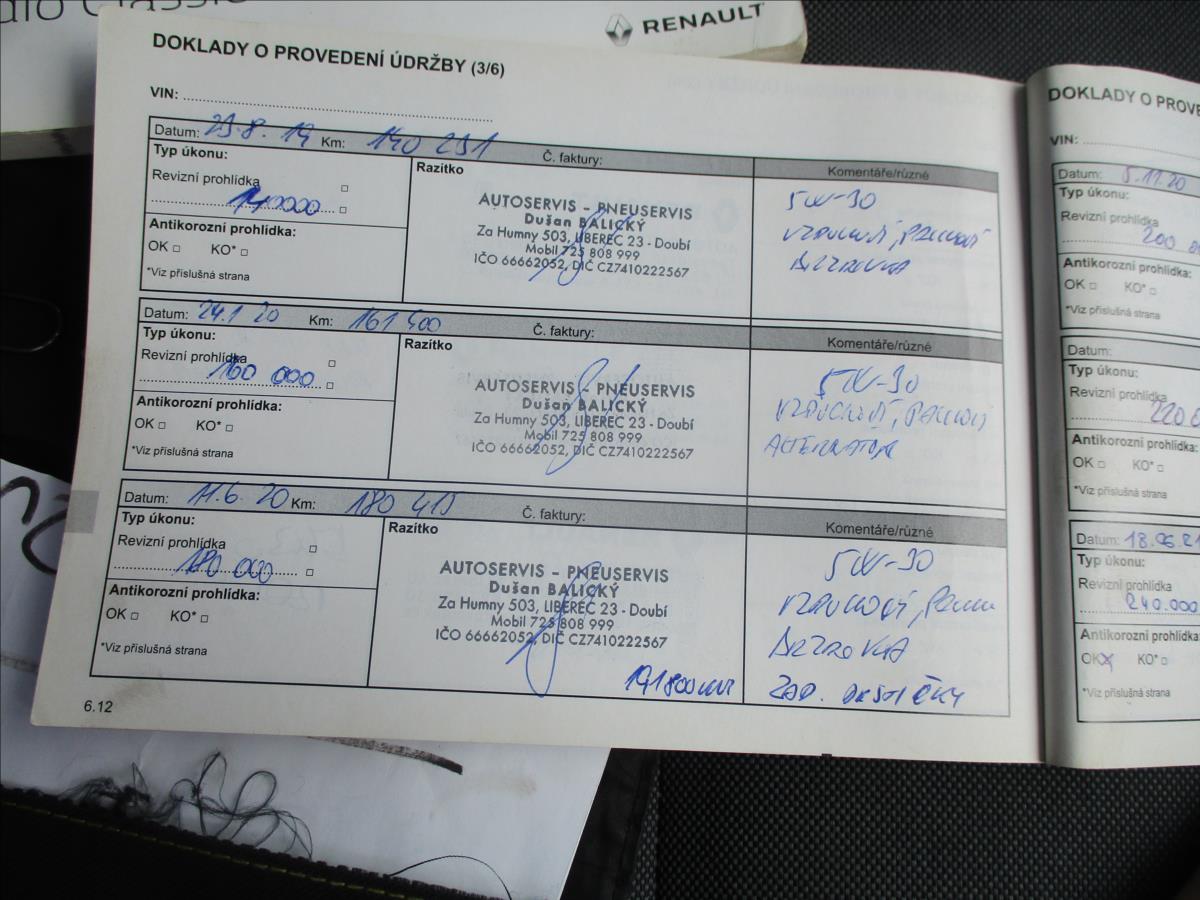 dio Classic
RENAULT
DOKLADY O PROVEDENÍ ÚDRŽBY (3/6)
VIN:
Datum: 29.8. 19 Km: 140 251 Č. faktury:
Typ úkonu:
Revizní prohlídka
140000
Antikorozní prohlídka:
OK KO*
*Viz příslušná strana
Razítko
AUTOSERVIS - PNEUSERVIS
Dušan BALICKÝ
Za Humny 503, LIBEREC 23 - Doubí
Mobil 725 808 999
IČO 66662052, DIČ CZ7410222567
Komentáře/různé
5W-30
VZDUCHOVÝ, PALIVOVÝ
BRZDOVKA
Datum: 24.1 20 Km: 161 400 Č. faktury:
Typ úkonu:
Revizní prohlídka
160 000
Antikorozní prohlídka:
OK KO*
*Viz příslušná strana
Razítko
AUTOSERVIS - PNEUSERVIS
Dušan BALICKÝ
Za Humny 503, LIBEREC 23 - Doubí
Mobil 725 808 999
IČO 66662052, DIČ CZ7410222567
Komentáře/různé
5W-30
VZDUCHOVÝ, PALIVOVÝ
ALTERNÁTOR
Datum: 11.6. 20 Km: 180 415 Č. faktury:
Typ úkonu:
Revizní prohlídka
180 000
Antikorozní prohlídka:
OK KO*
*Viz příslušná strana
Razítko
AUTOSERVIS - PNEUSERVIS
Dušan BALICKÝ
Za Humny 503, LIBEREC 23 - Doubí
Mobil 725 808 999
IČO 66662052, DIČ CZ7410222567
191800 km
Komentáře/různé
5W-30
VZDUCHOVÝ,
BRZDOVKA
ZAD. DESTIČKY
6.12
DOKLADY O PROVE
VIN:
Datum: 5.11.20
Typ úkonu:
Revizní prohlídka
200
Antikorozní prohlídka:
OK KO*
*Viz příslušná strana
Datum:
Typ úkonu:
Revizní prohlídka
220
Antikorozní prohlídka:
OK KO*
*Viz příslušná strana
Datum: 18.06.21
Typ úkonu:
Revizní prohlídka
240.000
Antikorozní prohlídka:
OK KO*
*Viz příslušná strana